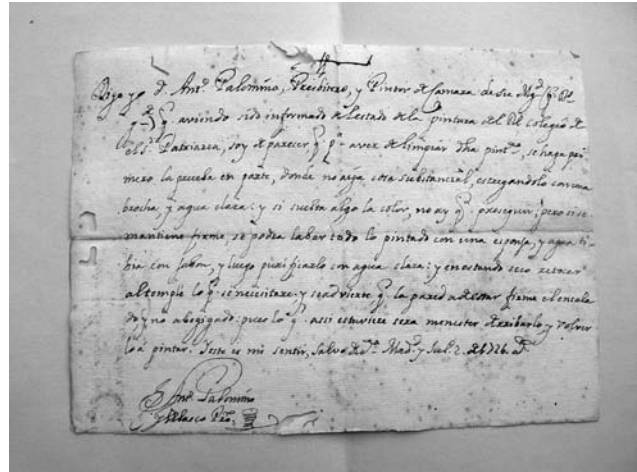 Digo yo D. Antº. Palomino, Presbitero, y Pintor de Camara de su Mgd.
q. aviendo sido informado del estado de la pintura del Rl. Colegio de
el Sr. Patriarca, soy de parecer q. pª. aver de limpiar dha pintrª. se haga pri
mero la prueba en parte, donde no aya cosa substancial, estregandolo con una
brocha, y agua clara: y si suelta algo la color, no ay q. proseguir; pero si se
mantiene firme, se podra labar todo lo pintado con una esponja, y agua ti-
bia con jabon, y luego purificarlo con agua clara: y en estando seco retocar
al temple lo q. se necesitare. y se advierte q. la pared a de estar firme el encala
do, y no abofigado: pues lo q. assi estuviere sera menester derribarlo y volver
lo a pintar. Este es mi sentir, salvo &. Madd. y Jul. 2. de 1726. as.
Antº. Palomino
y Velasco